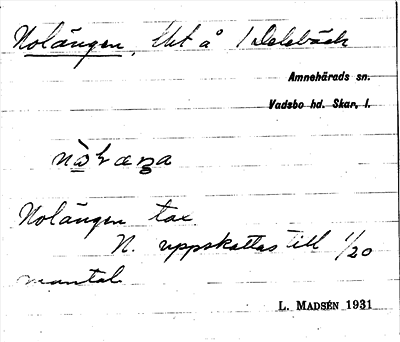 Nolängen, lht å
Amnehärads sn.
Vadsbo hd. Skar. l.
Nolängen tax
N. uppskattas till 1/20
mantal
L. MADSÉN 1931